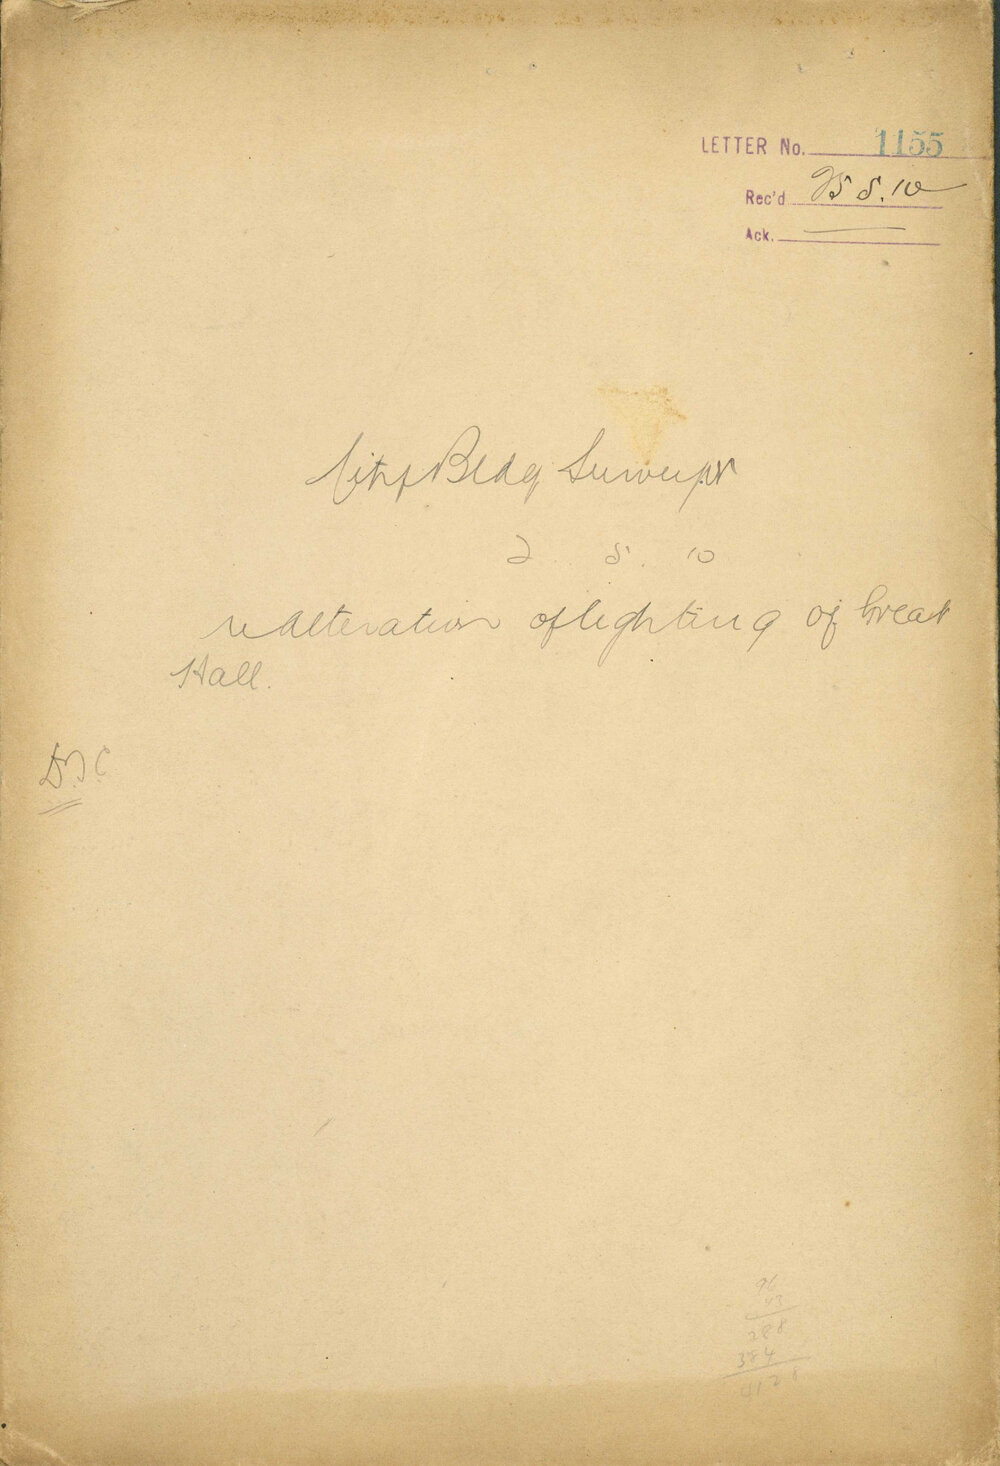 LETTER No. 1155
Rec'd 25 5.10
Ack.
City Bldg Surveyor
2 5. 10
re Alteration of lighting of Great
Hall.
96
43
288
384
4128